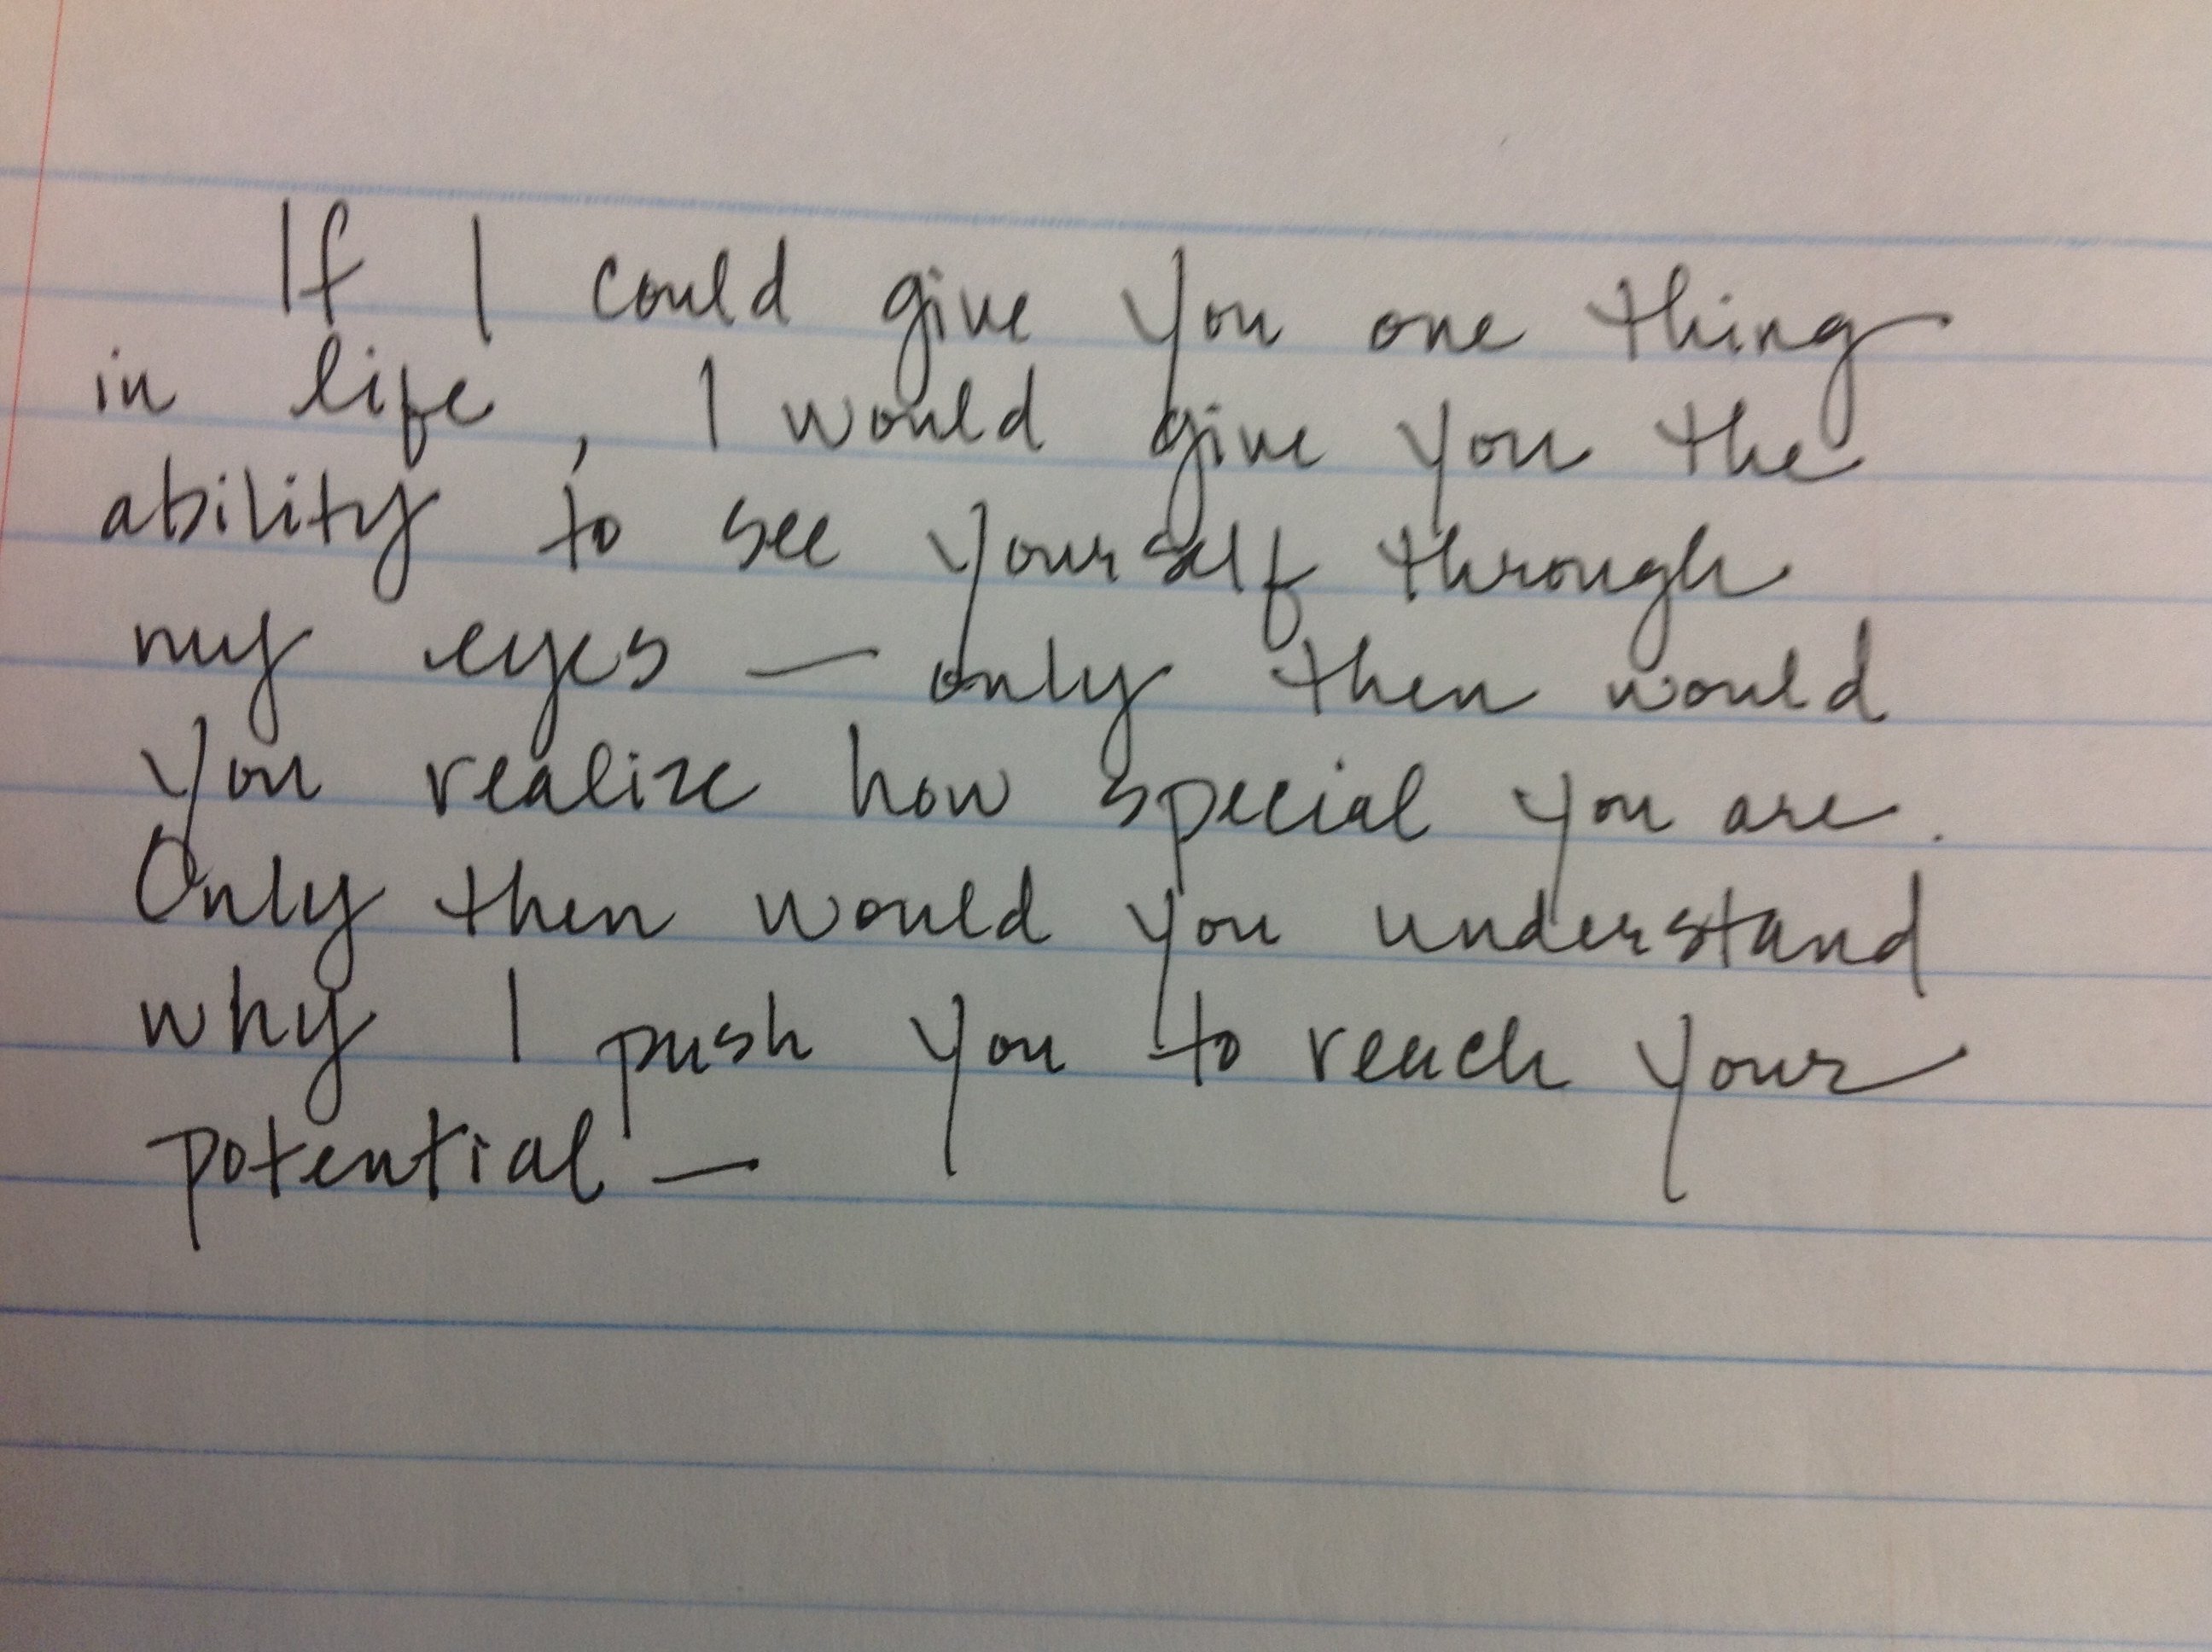 If I could give you one thing
in life, I would give you the
ability to see yourself through
my eyes — only then would
you realize how special you are.
Only then would you understand
why I push you to reach your
potential —